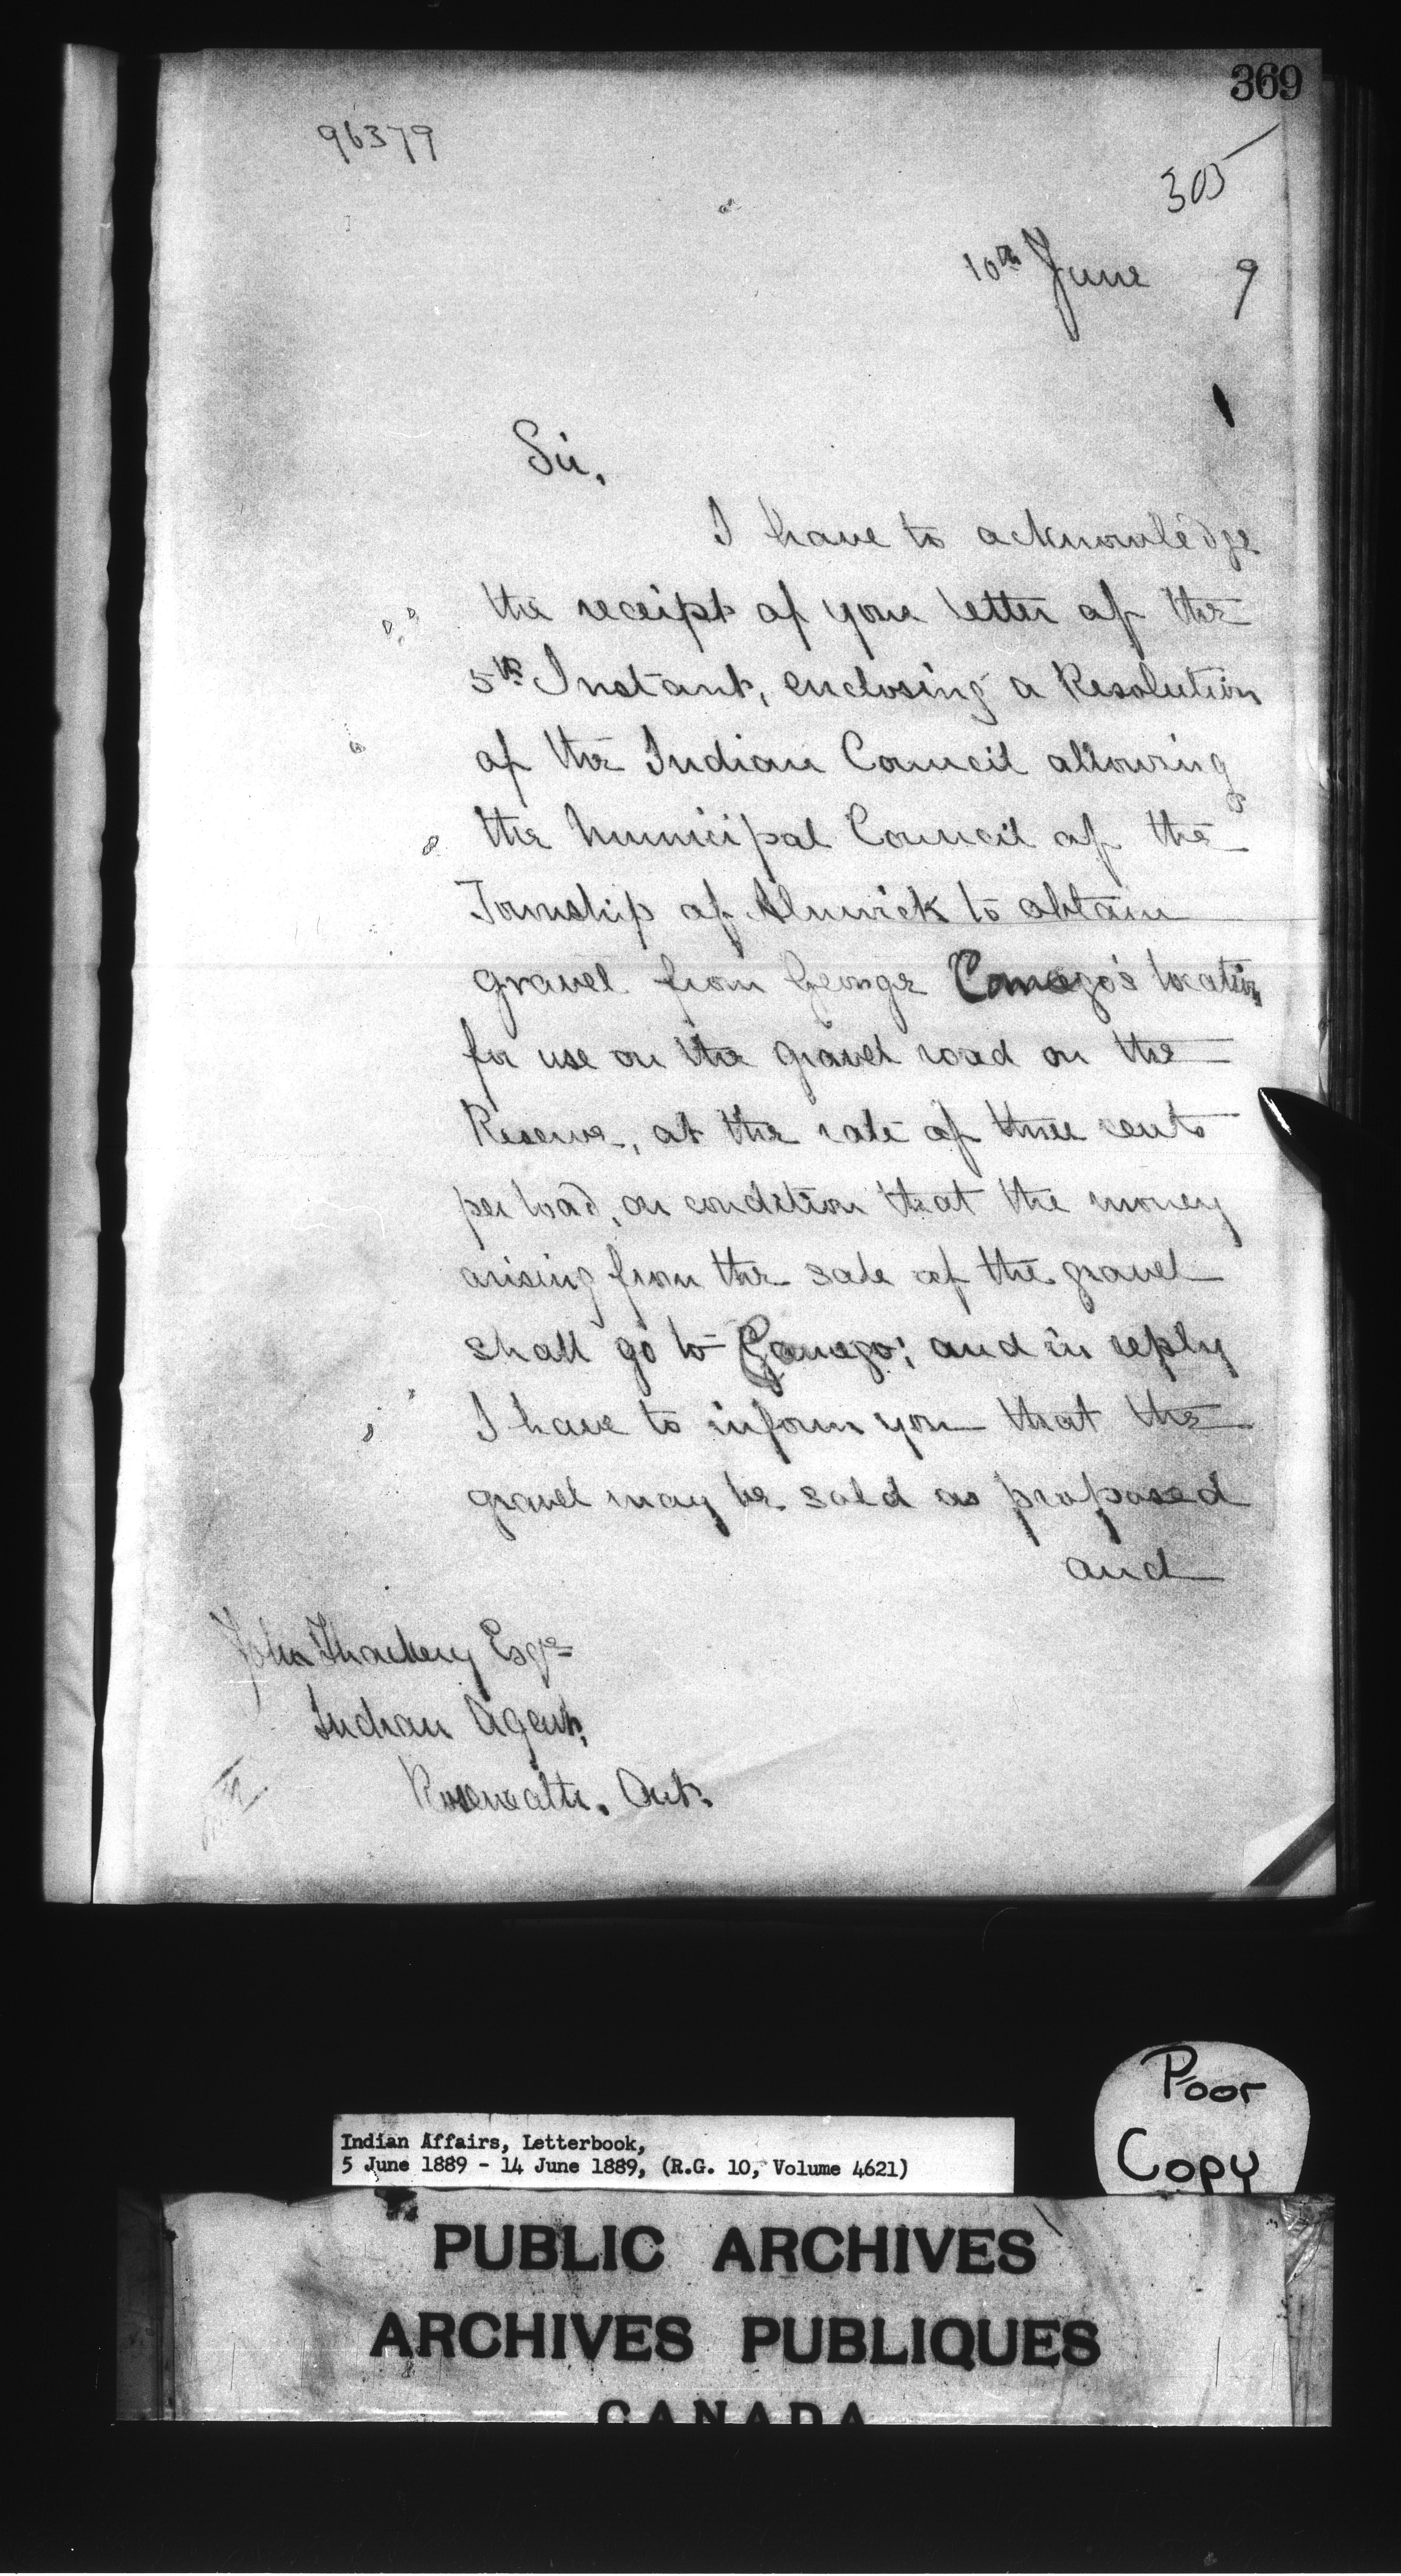 369
96379
305
10th June 9
Sir,
I have to acknowledge
the receipt of your letter of the
5th Instant, enclosing a Resolution
of the Indian Council allowing
the Municipal Council of the
Township of Alnwick to obtain
gravel from George Comego's location
for use on the gravel road on the
Reserve, at the rate of three cents
per load, on condition that the money
arising from the sale of the gravel
shall go to Comego; and in reply
I have to inform you that the
gravel may be sold as proposed
and
John Thackery Esqre
Indian Agent,
Roseneath, Ont.
Poor
Copy
Indian Affairs, Letterbook,
5 June 1889 - 14 June 1889, (R.G. 10, Volume 4621)
PUBLIC ARCHIVES
ARCHIVES PUBLIQUES
CANADA